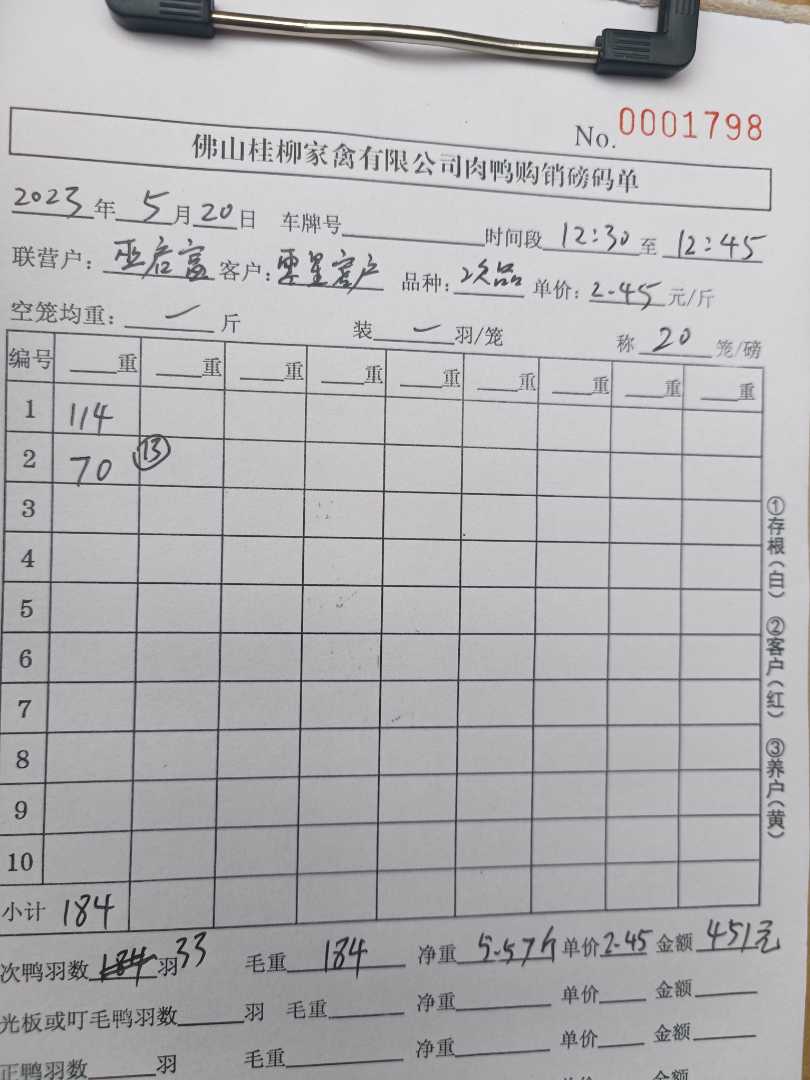 No. 0001798
佛山桂柳家禽有限公司肉鸭购销磅码单
2023年5月20日 车牌号 时间段 12:30 至 12:45
联营户: 巫启富 客户: 零星客户 品种: 次品 单价: 2.45 元/斤
空笼均重: 一 斤 装 一 羽/笼 称 20 笼/磅
编号 重 重 重 重 重 重 重 重 重
1 114
2 70 ⑬
3
4
5
6
7
8
9
10
小计 184
①存根(白) ②客户(红) ③养户(黄)
次鸭羽数 184 羽 33 毛重 184 净重 5.57斤 单价 2.45 金额 451元
光板或叮毛鸭羽数 羽 毛重 净重 单价 金额
正鸭羽数 羽 毛重 净重 单价 金额